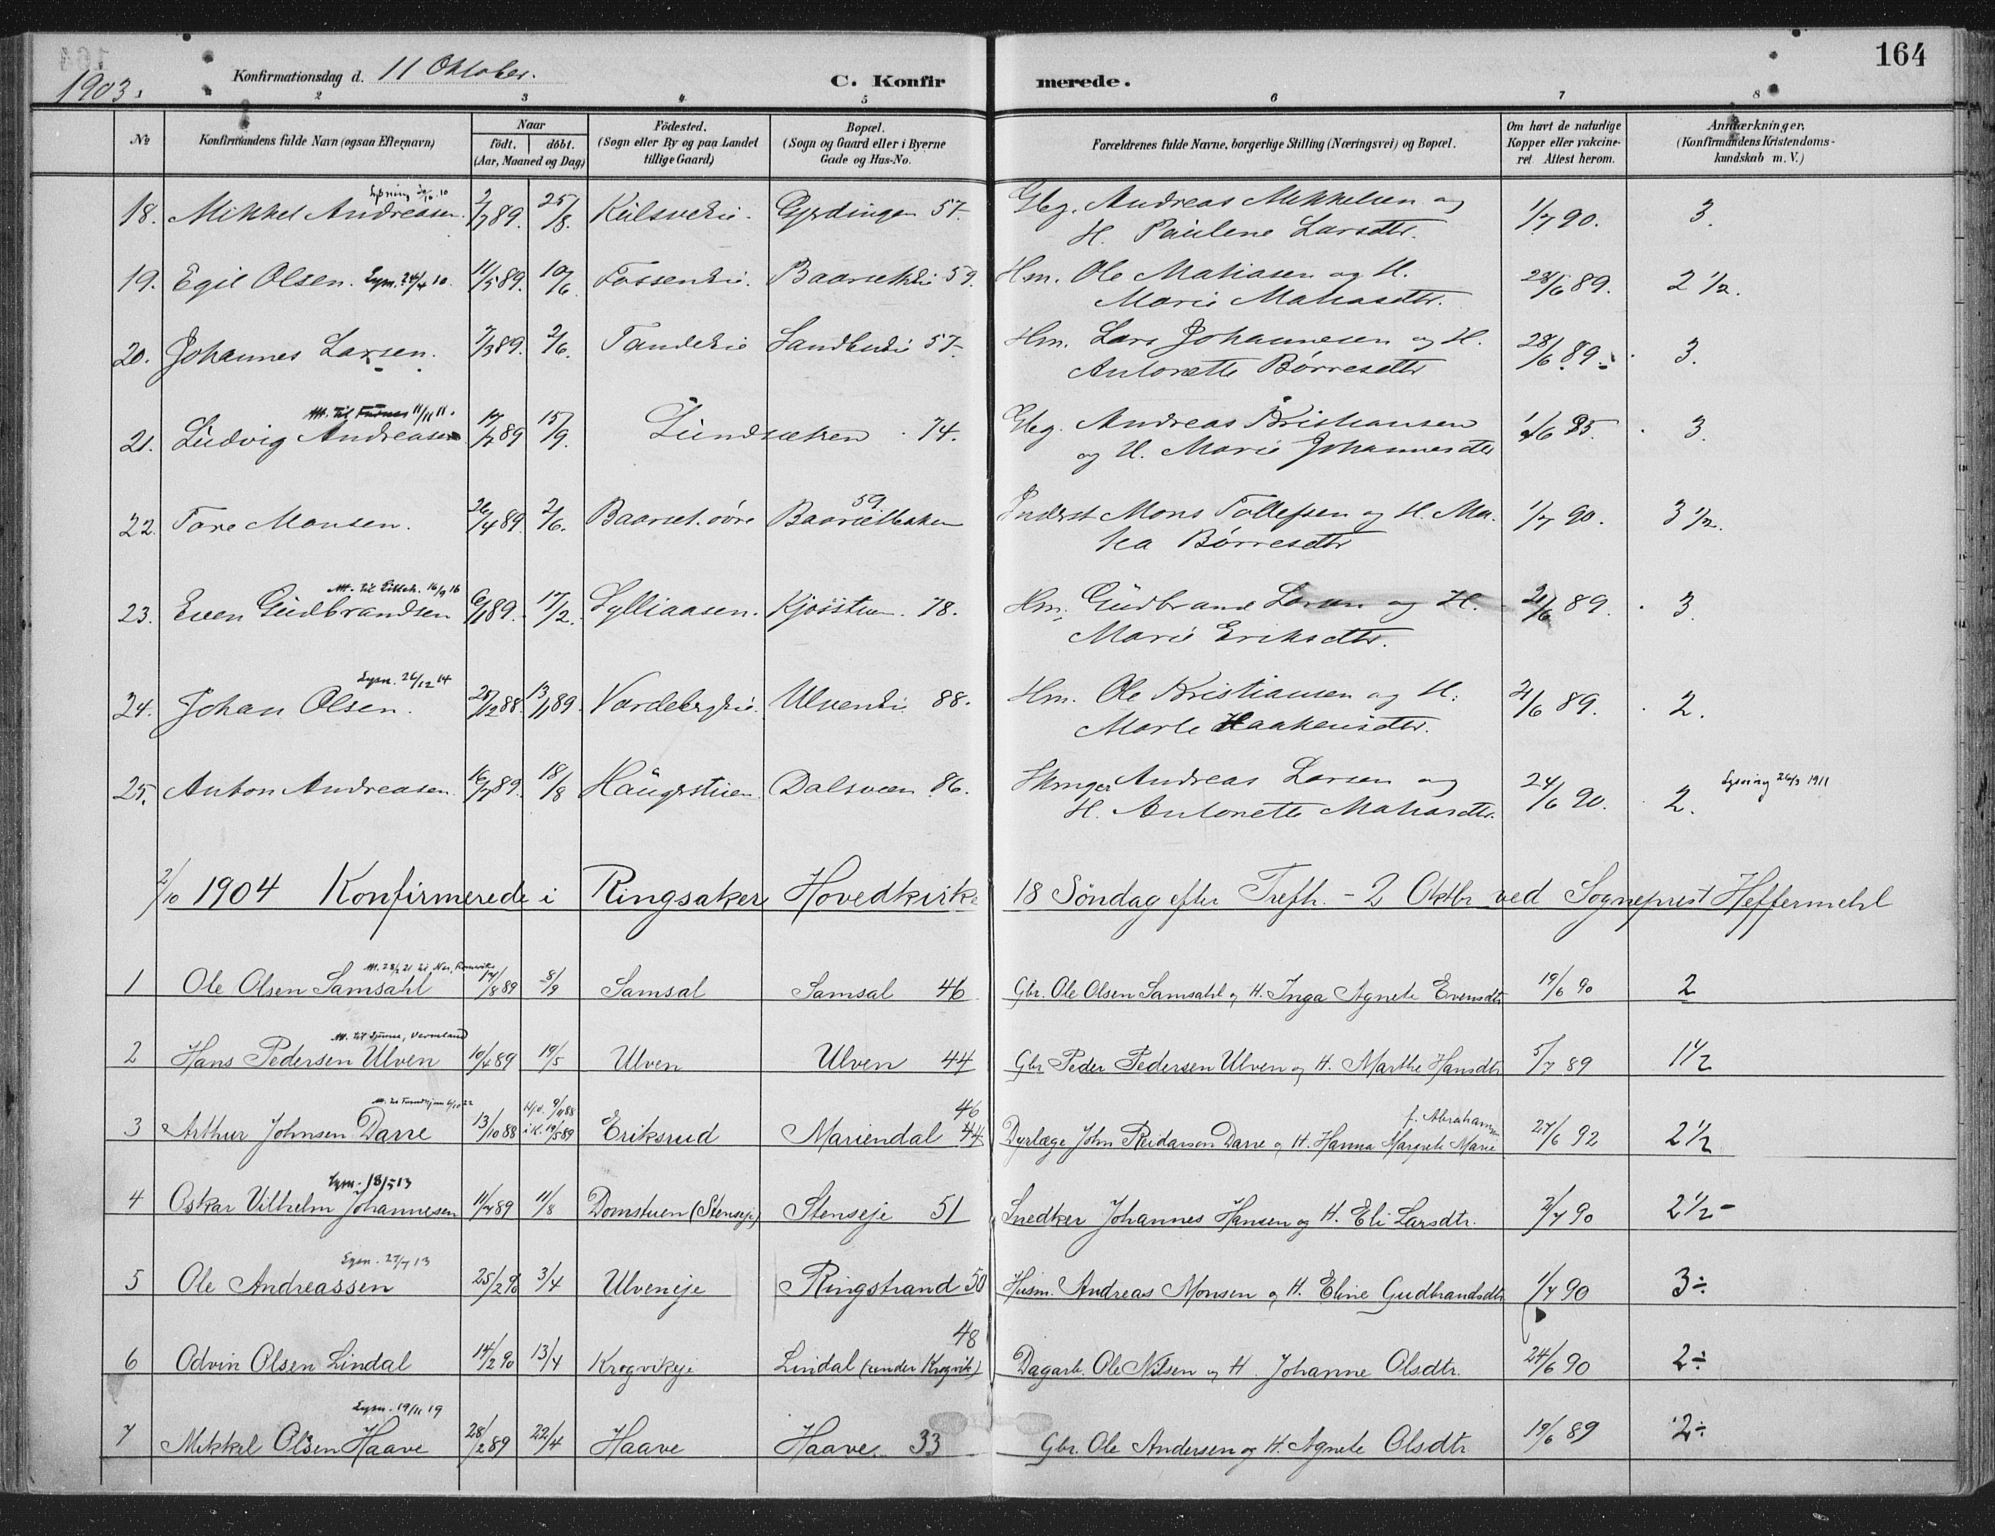 164
1903. Konfirmationsdag d. 11 Oktober. C. Konfirmerede.
2 3 4 5 6 7 8
No Konfirmandens fulde Navn (ogsaa Efternavn) Naar født. døbt. (Aar, Maaned og Dag) Fødested. (Sogn eller By og paa Landet tillige Gaard) Bopæl. (Sogn og Gaard eller i Byerne Gade og Hus-No. Forældrenes fulde Navne, borgerlige Stilling (Næringsvei) og Bopæl. Om havt de naturlige Kopper eller vaccineret Attest herom. Anmærkninger. (Konfirmandens Kristendomskundskab m. V.)
18. Mikkel Andreassen. 2/7 89 25/8. Gyrdingen 57. Gbg. Andreas Mikkelsen og
H. Paulene Larsdtr. 1/7 90. 3.
Lysn. 24/4 10.
19. Egil Olsen. 11/5 89. 10/6 Fosseneie. 59. Hm. Ole Matiasen og H.
Marie Matiasdtr. 28/6 89. 2 1/2.
20. Johannes Larsen. 7/3 89. 2/6. Tandeeie 57. Hm. Lars Johannesen og H.
Antonette Børresdtr 28/6 89. 3.
Att. til Furnes 11/11 11.
21. Ludvig Andreasen 17/7 89 15/9. Lundbakken 74. Gbg. Andreas Kristiansen
og H. Marie Johannesdtr 3.
22. Tore Monsen. 26/4 89. 2/6. Baarset øvre 59 Inderst Mons Tollefsen og H. Ma-
ria Børresdtr 1/7 90. 3 1/2.
16/9 16
23. Even Gudbrandsen 6/1 89. 17/2. Sylliaasen. Kjosstuen 78. Hm. Gudbrand Larsen og H.
Marie Eriksdtr. 21/6 89. 3
Lysn. 26/12 14
24. Johan Olsen. 28/12 88. 13/1 89. Vardebergeie. Ulveneie. 88. Hm. Ole Kristiansen og H.
Marte Haakensdtr. 21/6 89. 2.
25. Anton Andreasen. 16/7 89. 18/8 Haugstuen. Dalsveen 86. Andreas Larsen og
H. Antonette Matiasdtr. 24/6 90. 2. Lysning 26/3 1911
2/10 1904 Konfirmerede i Ringsaker Hovedkirke 18 Søndag efter Trefh. - 2 Oktbr ved Sogneprest Heffermehl
1 Ole Olsen Samsahl 17/8 89 8/9 Samsal Samsal 46 Gbr. Ole Olsen Samsahl og H. Inga Agnete Evensdtr 19/6 90 2
2 Hans Pedersen Ulven 10/4 89 19/5 Ulven Ulven 44 Gbr Peder Pedersen Ulven og H. Marthe Hansdtr 5/7 89 1 1/2
46 f. Abrahamsen
3 Arthur Johnsen Darre 13/10 88 Hjd. 9/11 88 i K. 19/5 89 Eriksrud Mariendal 44 Dyrlæge John Reidarson Darre og H. Hanna Margrete Marie 27/6 92 2 1/2
Lysn. 18/5 13
4 Oskar Vilhelm Johannesen 11/7 89 11/8 Domstuen (Stenseje) Stenseje 51 Snedker Johannes Hansen og H. Eli Larsdtr. 2/7 90 2 1/2 -
Lysn. 27/7 13
5 Ole Andreassen 25/2 90 3/4 Ulveneje Ringstrand 50 Husm. Andreas Monsen og H. Eline Gudbrandsdtr 1/7 90 3 ÷
48
6 Odvin Olsen Lindal 14/2 90 13/4 Krogvikeje Lindal (under Krogvik) Dagarb. Ole Nilsen og H. Johanne Olsdtr. 24/6 90 2 ÷
Lysn. 19/11 19
7 Mikkel Olsen Haave 28/2 89 22/4 Haave Haave 33 Gbr. Ole Andersen og H. Agnete Olsdtr 19/6 89 2 ÷